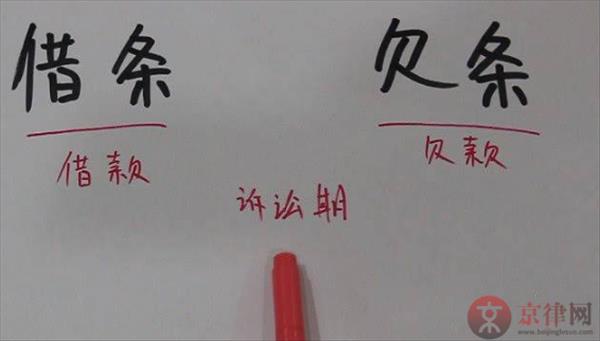 借条 欠条
借款 欠款
诉讼期
京律网
www.beijinglvsuo.com